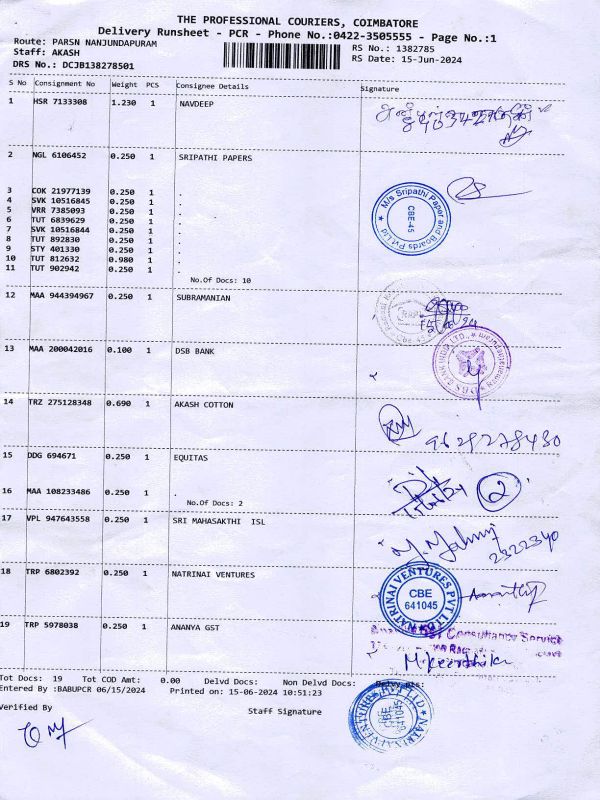 THE PROFESSIONAL COURIERS, COIMBATORE
Delivery Runsheet - PCR - Phone No.:0422-3505555 - Page No.:1
Route: PARSN NANJUNDAPURAM RS No.: 1382785
Staff: AKASH RS Date: 15-Jun-2024
DRS No.: DCJB138278501
S No Consignment No Weight PCS Consignee Details Signature
1 HSR 7133308 1.230 1 NAVDEEP
2 NGL 6106452 0.250 1 SRIPATHI PAPERS
3 COK 21977139 0.250 1 .
4 SVK 10516845 0.250 1 .
5 VRR 7385093 0.250 1 .
6 TUT 6839629 0.250 1 .
7 SVK 10516844 0.250 1 .
8 TUT 892830 0.250 1 .
9 STY 401330 0.250 1 .
10 TUT 812632 0.980 1 .
11 TUT 902942 0.250 1 .
No.Of Docs: 10
M/s Sripathi Paper and Boards Pvt Ltd
CBE-45
12 MAA 944394967 0.250 1 SUBRAMANIAN
13 MAA 200042016 0.100 1 DSB BANK
14 TRZ 275128348 0.690 1 AKASH COTTON
9629278430
15 DDG 694671 0.250 1 EQUITAS
16 MAA 108233486 0.250 1 .
No.Of Docs: 2
2
17 VPL 947643558 0.250 1 SRI MAHASAKTHI ISL
2322340
18 TRP 6802392 0.250 1 NATRINAI VENTURES
NATRINAI VENTURES PVT LTD
CBE
641045
19 TRP 5978038 0.250 1 ANANYA GST
Consultancy Service
M.Keerthika
Tot Docs: 19 Tot COD Amt: 0.00 Delvd Docs: Non Delvd Docs:
Entered By :BABUPCR 06/15/2024 Printed on: 15-06-2024 10:51:23
NATRINAI VENTURES PVT LTD
CBE
641045
Verified By Staff Signature